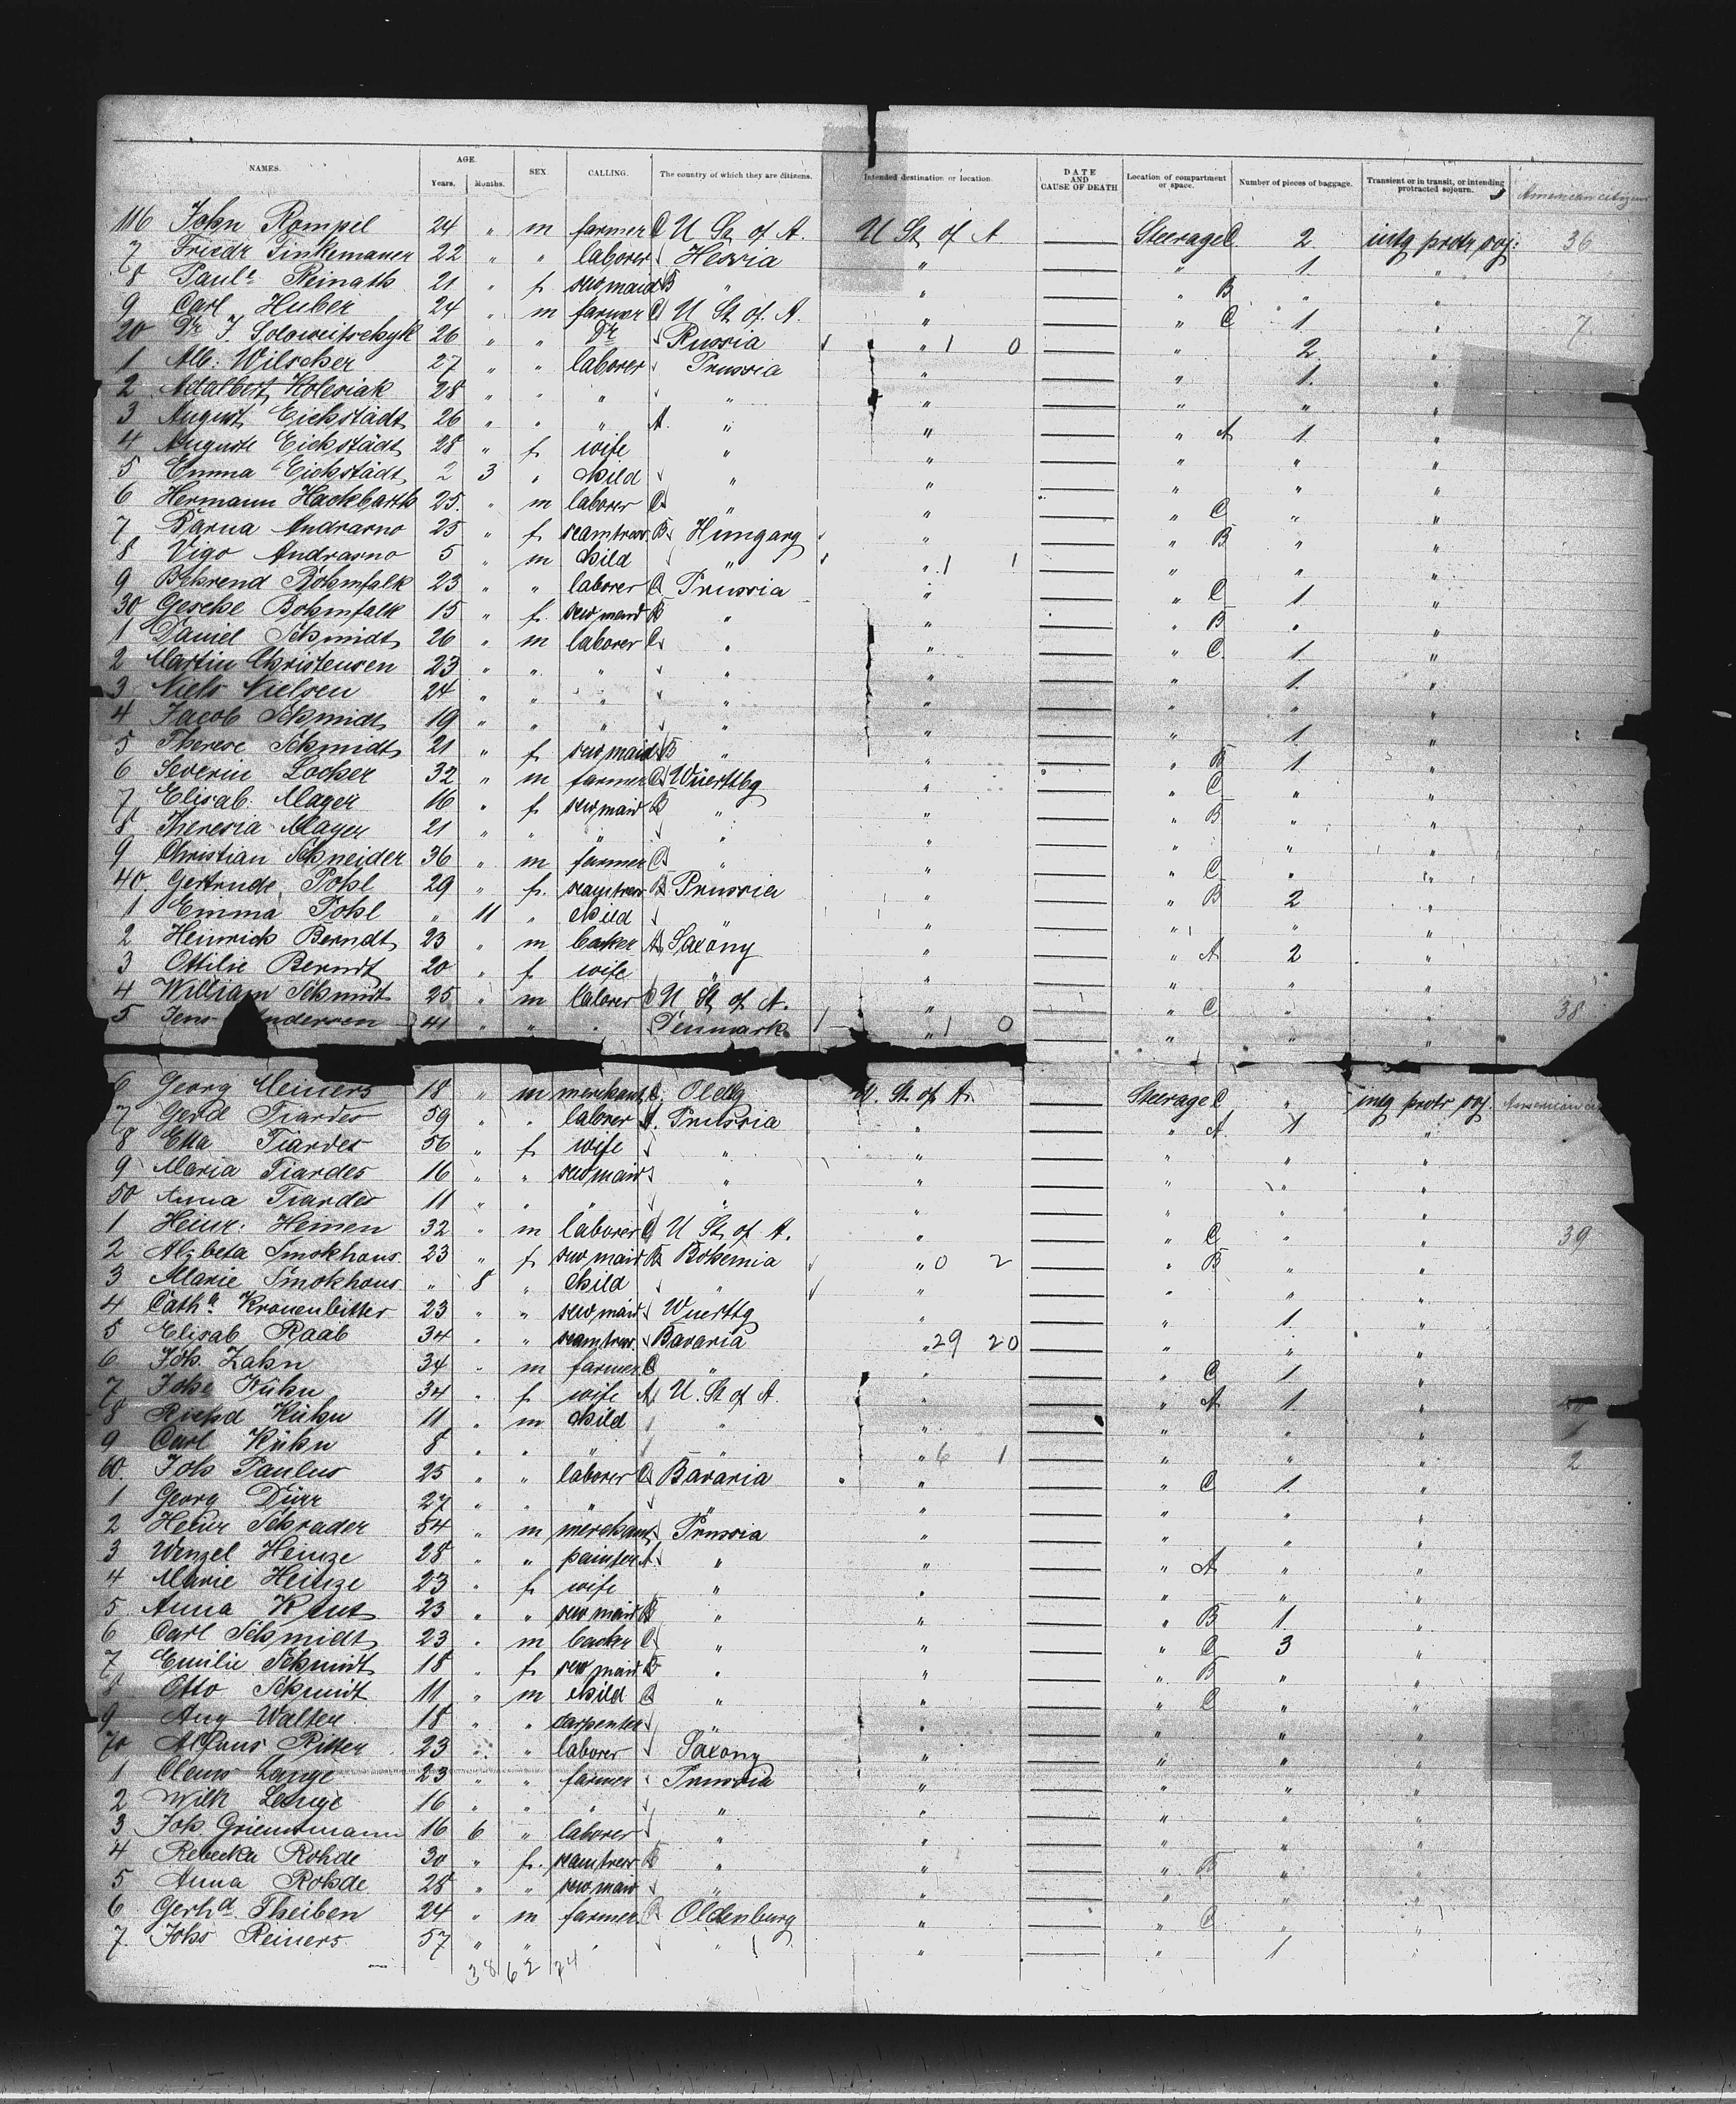 NAMES. AGE. Years. Months. SEX CALLING. The country of which they are citizens. Intended destination or location. DATE AND CAUSE OF DEATH Location of compartment or space. Number of pieces of baggage. Transient or in transit, or intending protracted sojourn. American citizens
116 John Rompel 24 " m farmer C U St. of A. U St. of A Steerage C 2 intg protr soj: 36
7 Friedr Finkemauer 22 " " laborer Hessia " " 1 "
8 Paule Reinath 21 " f serv maid B " " " B " "
9 Carl Huber 24 " m farmer C U St. of. A. " " C 1 " 7
20 Dr J. Soloweitschyk 26 " " Dr Russia " 1 0 " 2 "
1 Alb. Wilscher 27 " " laborer Prussia " " 1. "
2 Adalbert Kolesiak 28 " " " " " " " "
3 August Eichstädt 26 " " " A " " " A 1 "
4 Auguste Eichstädt 28 " f wife " " " " "
5 Emma Eichstädt 2 3 " child " " " " "
6 Hermann Hackbarth 25. " m laborer C " " " C " "
7 Barna Andrasno 25 " f seamtress B Hungary " " B " "
8 Vigo Andrasno 5 " m child " " 1 1 " " "
9 Behrend Bohmfalk 23 " " laborer C Prussia " " C 1 "
30 Gesche Bohmfalk 15 " f. serv maid B " " " B " "
1 Daniel Schmidt 26 " m laborer C " " " C. 1. "
2 Martin Christensen 23 " " " " " " 1. "
3 Niels Nielsen 24 " " " " " " " "
4 Jacob Schmidt 19 " " " " " " 1 "
5 Therese Schmidt 21 " f serv maid B " " " B 1 "
6 Severin Locher 32 " m farmer C Wuerttbg " " C " "
7 Elisab. Mager 16 " f serv maid B " " " B " "
8 Theresia Mager 21 " " " " " " " "
9 Christian Schneider 36 " m farmer C " " " C " "
40. Gertrude Pohl 29 " f. seamtress B Prussia " " B 2 "
1 Emma Pohl " 11 " child " " " " "
2 Heinrich Berndt 23 " m backer A Saxony " " A 2 "
3 Ottilie Berndt 20 " f wife " " " " "
4 William Schmidt 25 " m laborer C U St. of A. " " C " " 38
5 Jens Andersen 41 " " " Denmark " 1 0 " " "
6 Georg Meiners 18 " m merchant C. Oldbg U. St. of A. Steerage C " intg protr soj.
7 Gerd Tiardes 59 " " laborer A. Prussia " " A. 1 "
8 Etta Tiardes 56 " f wife " " " " "
9 Maria Tiardes 16 " " serv maid " " " " "
50 Anna Tiardes 11 " " " " " " " "
1 Heinr. Heinen 32 " m laborer C U St. of A. " " C " " 39
2 Alzbeta Smokhous 23 " f serv maid B Bohemia " 0 2 " B " "
3 Marie Smokhous " 8 " child " " " " "
4 Catha Kronenbitter 23 " " serv maid Wuerttg " " 1 "
5 Elisab Raab 34 " " seamtress. Bavaria " 29 20 " " "
6 Joh. Zahn 34 " m farmer C " " " C 1 "
7 Kühn 34 " f wife A U. St of A. " " A 1 "
8 Richd Kühn 11 " m child " " " " " 1
9 Carl Kühn 8 " " " " " 6 1 " " " 2
60. Joh Paulus 25 " " laborer C Bavaria " " C 1. "
1 Georg Dürr 27 " " " " " " " "
2 Heinr Schrader 54 " m merchant Prussia " " " "
3 Wenzel Heinze 28 " " painter A " " " A " "
4 Marie Heinze 23 " f wife " " " " "
5 Anna 23 " " serv maid B " " " B 1. "
6 Carl Schmidt 23 " m backer C " " " C 3 "
7 Emilie Schmidt 18 " f serv maid B " " " B " "
8 Otto Schmidt 11 " m child C " " " C " "
9 Aug Walter 18 " " carpenter " " " " "
70 Alfons Ritter 23 " " laborer Saxony " " " "
1 Claus Lange 23 " " farmer Prussia " " " "
2 Wilh Lange 16 " " " " " " " "
3 Joh. 16 6 " laborer " " " " "
4 Rebecka Rohde 30 " f. seamtress B " " " B " "
5 Anna Rohde 28 " " serv. maid " " " " "
6 Gerhd. Theiben 24 " m farmer C Oldenburg " " C " "
7. Johs Reiners 57 " " " " " " 1 "
38 62 74